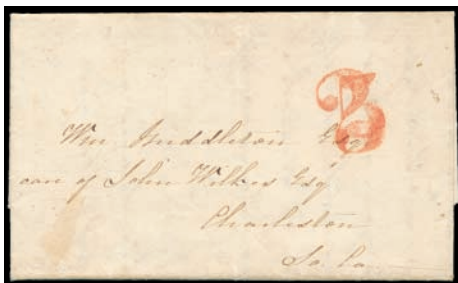 3
Wm Middleton Esq
care of John Wilkes Esq
Charleston
So. Ca.